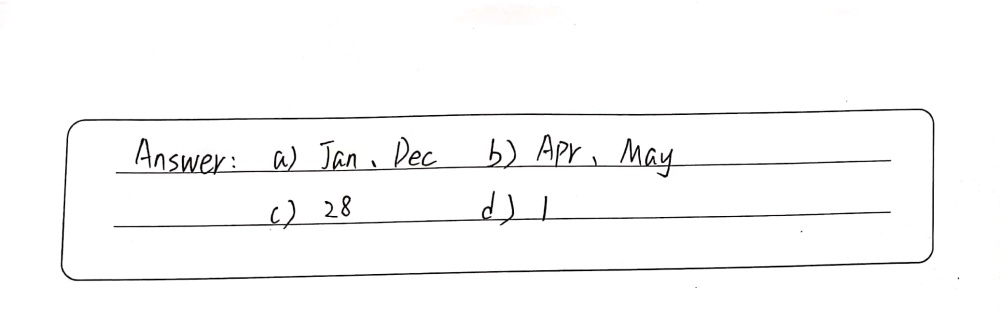 Answer: a) Jan、Dec b) Apr、May
c) 28 d) 1